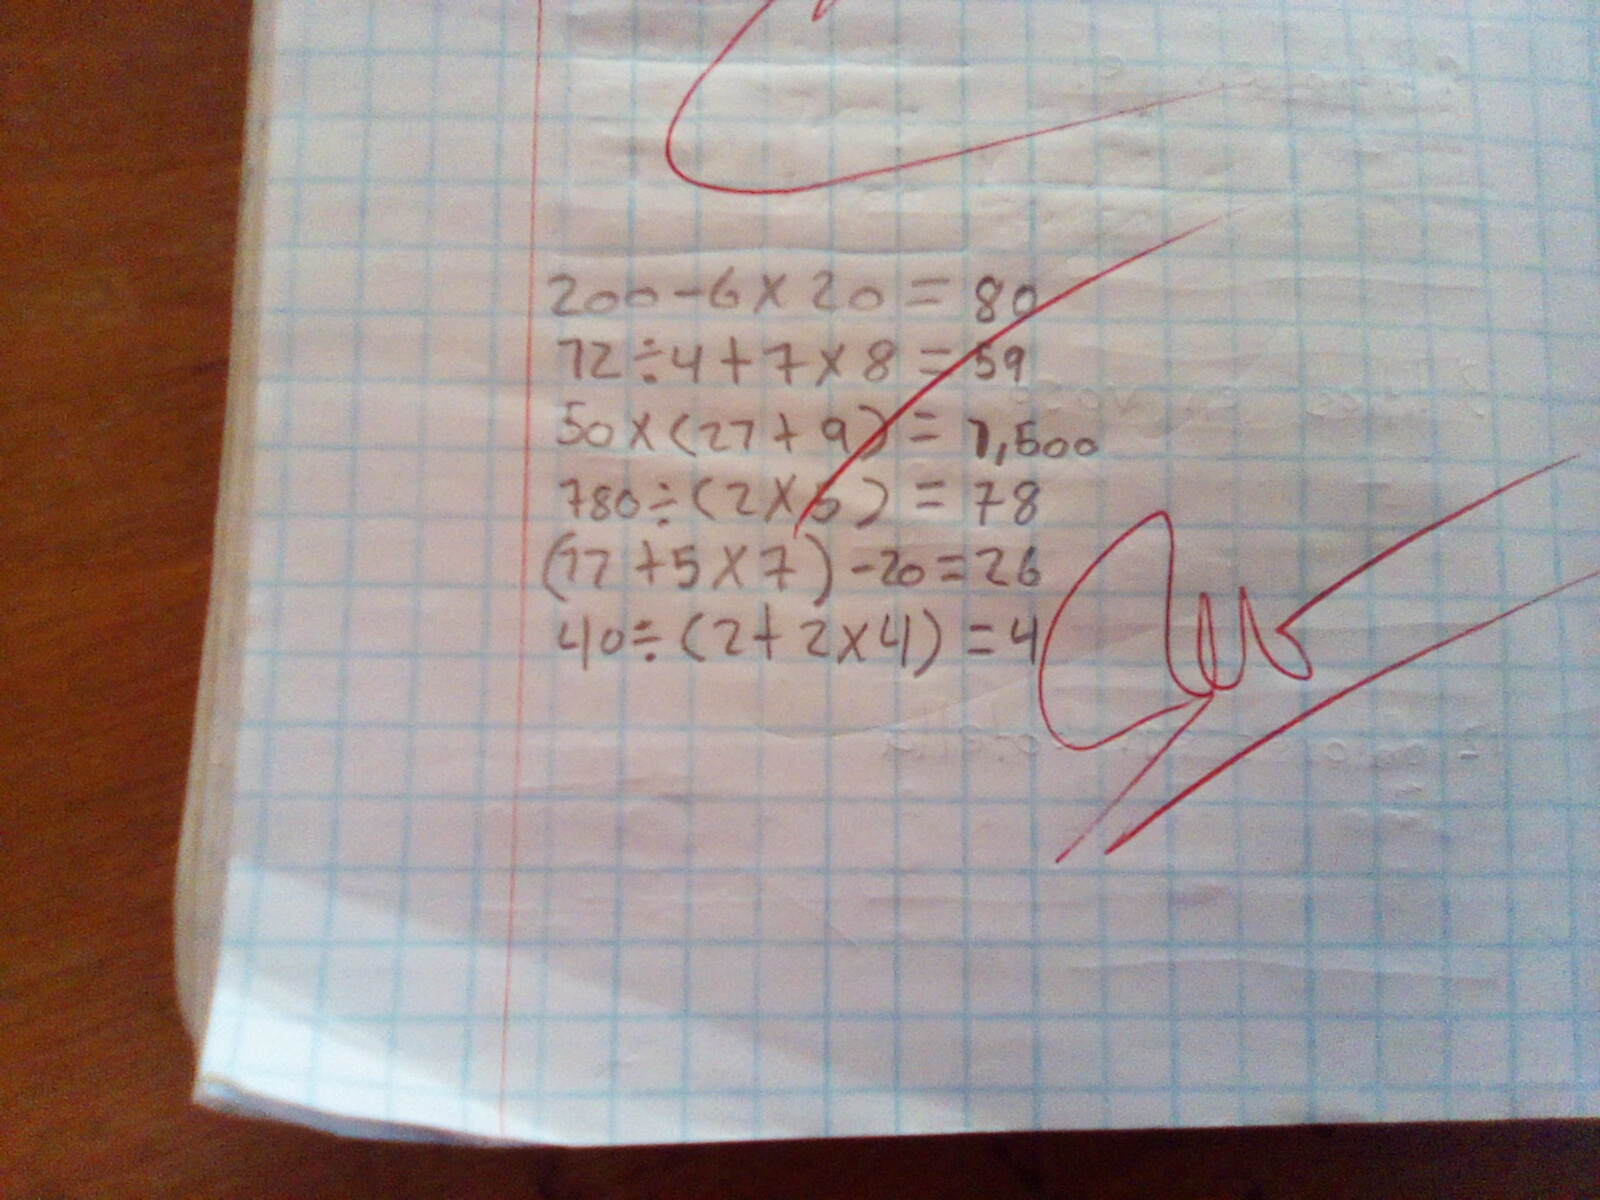 200-6×20=80
12÷4+7×8=59
50×(21+9)=1,500
780÷(2×5)=78
(11+5×7)-20=26
40÷(2+2×4)=4